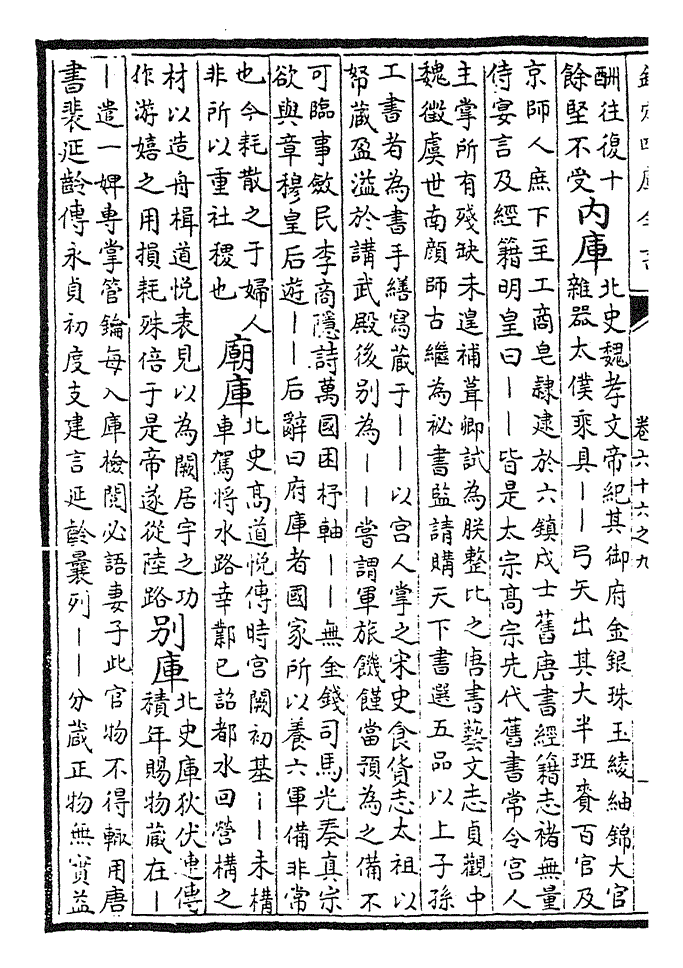 欽定四庫全書
卷六十六之九
酬往復十
餘堅不受
內庫
北史魏孝文帝紀其御府金銀珠玉綾紬錦大官
雜器太僕乘具——弓矢出其大半班賚百官及
京師人庶下至工商皂隷逮於六鎮戍士舊唐書經籍志褚無量
侍宴言及經籍明皇曰——皆是太宗高宗先代舊書常令宮人
主掌所有殘缺未遑補葺卿試為朕整比之唐書藝文志貞觀中
魏徵虞世南顔師古繼為祕書監請購天下書選五品以上子孫
工書者為書手繕寫藏于——以宮人掌之宋史食貨志太祖以
帑藏盈溢於講武殿後别為——嘗謂軍旅饑饉當預為之備不
可臨事斂民李商隱詩萬國困杼軸——無金錢司馬光奏真宗
欲與章穆皇后遊——后辭曰府庫者國家所以養六軍備非常
也今耗散之于婦人
非所以重社稷也
廟庫
北史高道悦傳時宮闕初基——未構
車駕將水路幸鄴已詔都水回營構之
材以造舟楫道悦表見以為闕居宇之功
作游嬉之用損耗殊倍于是帝遂從陸路
别庫
北史庫狄伏連傳
積年賜物藏在—
—遣一婢專掌管鑰每入庫檢閲必語妻子此官物不得輒用唐
書裴延齡傳永貞初度支建言延齡曩列——分藏正物無實益